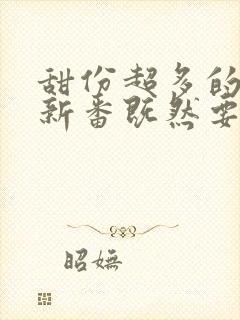 甜份超多的
新番既然要
昭嫵